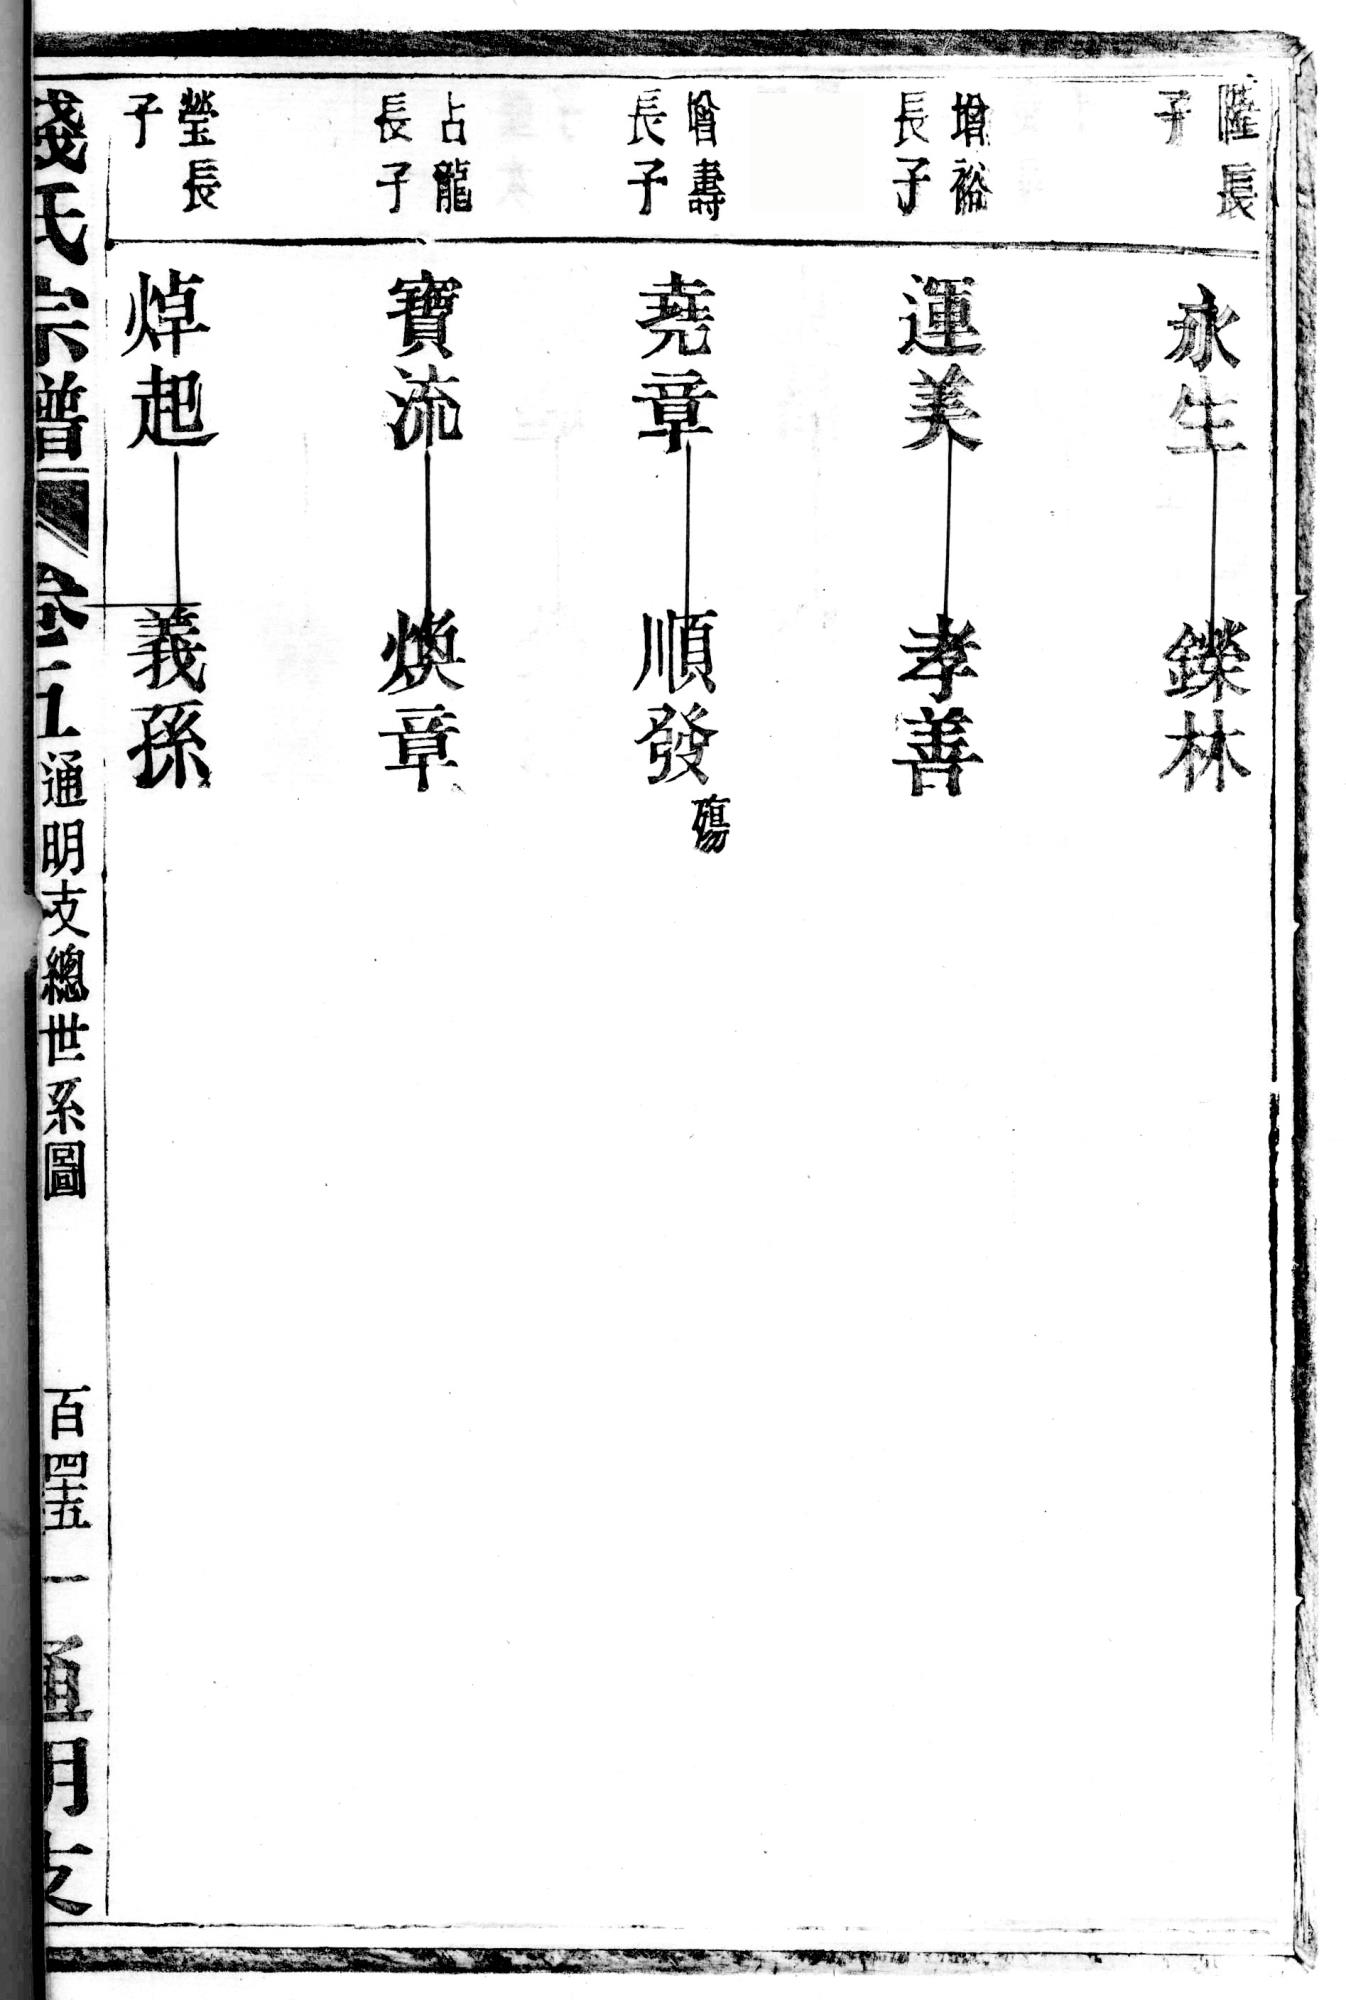 陞長
子
永生
鑠林
增裕
長子
運美
孝善
增壽
長子
堯章
順發
殤
占龍
長子
寶流
煥章
瑩長
子
焯起
義孫
錢氏宗譜
卷二五
通明支總世系圖
百四十五
一
通明支